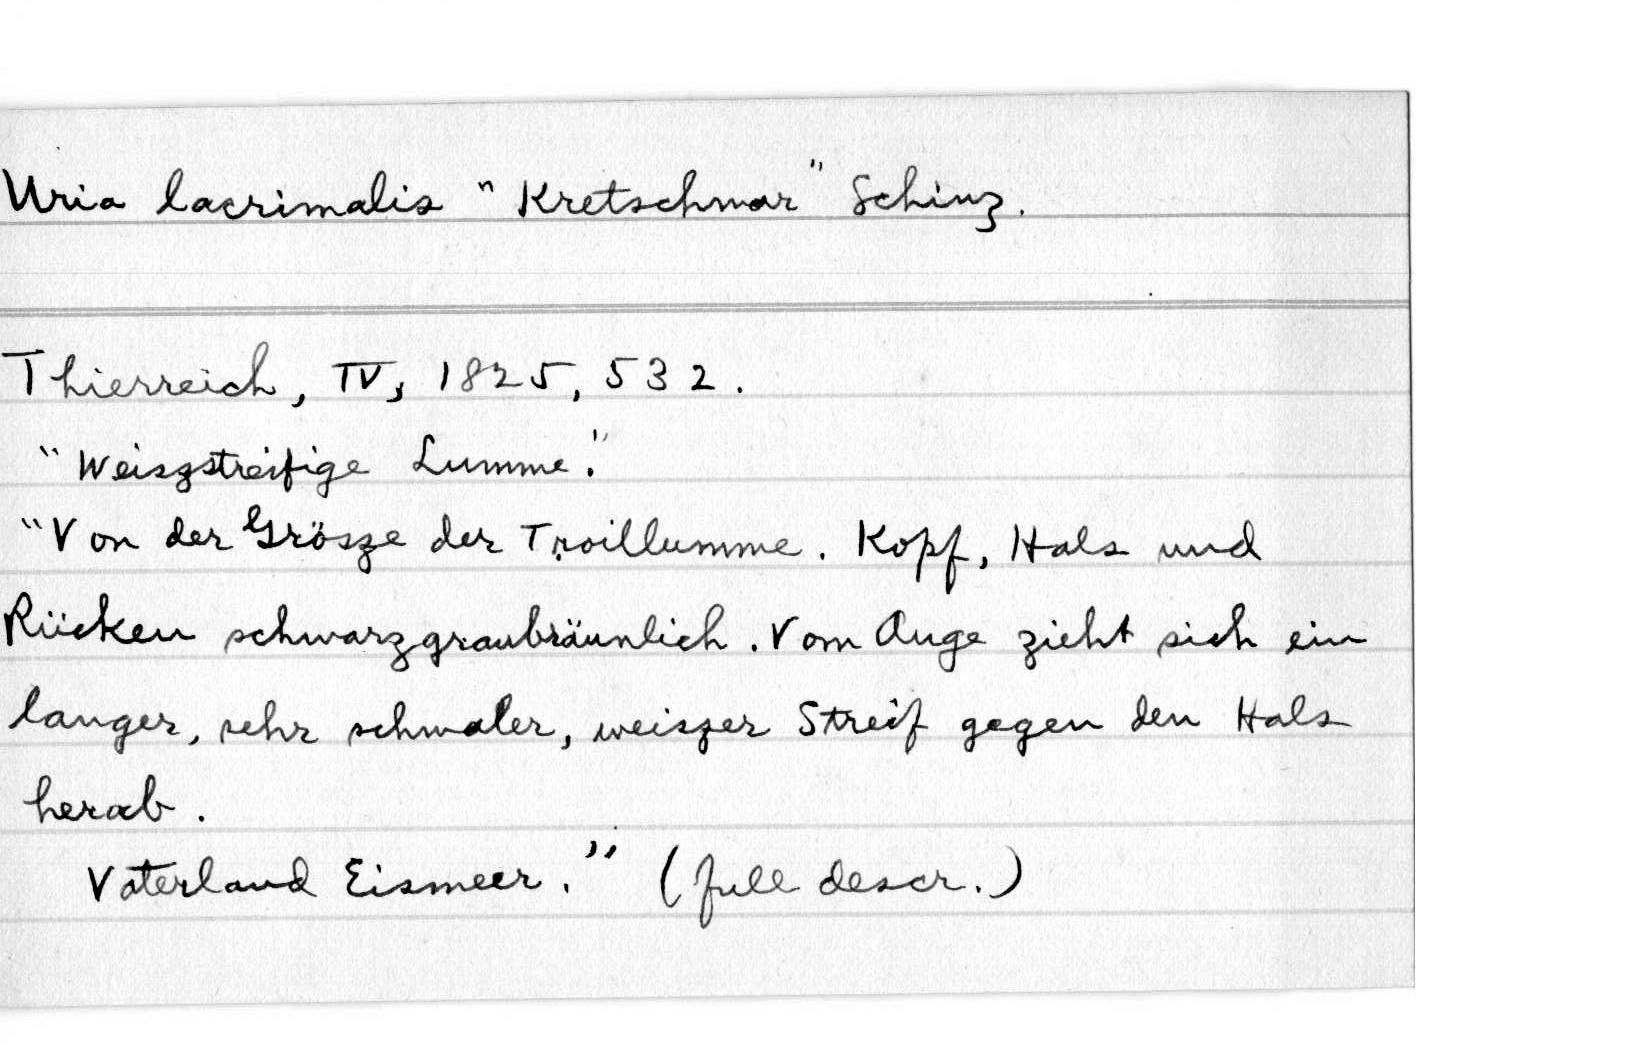 Uria lacrimalis "Kretschmar" Schinz.
Thierreich, IV, 1825, 532.
"Weiszstreifige Lumme."
"Von der Grösze der Troillumme. Kopf, Hals und
Rücken schwarzgraubräunlich. Vom Auge zieht sich ein
langer, sehr schmaler, weiszer Streif gegen den Hals
herab.
Vaterland Eismeer." (full descr.)